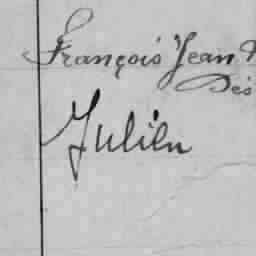 François Jean
Dés
Julien